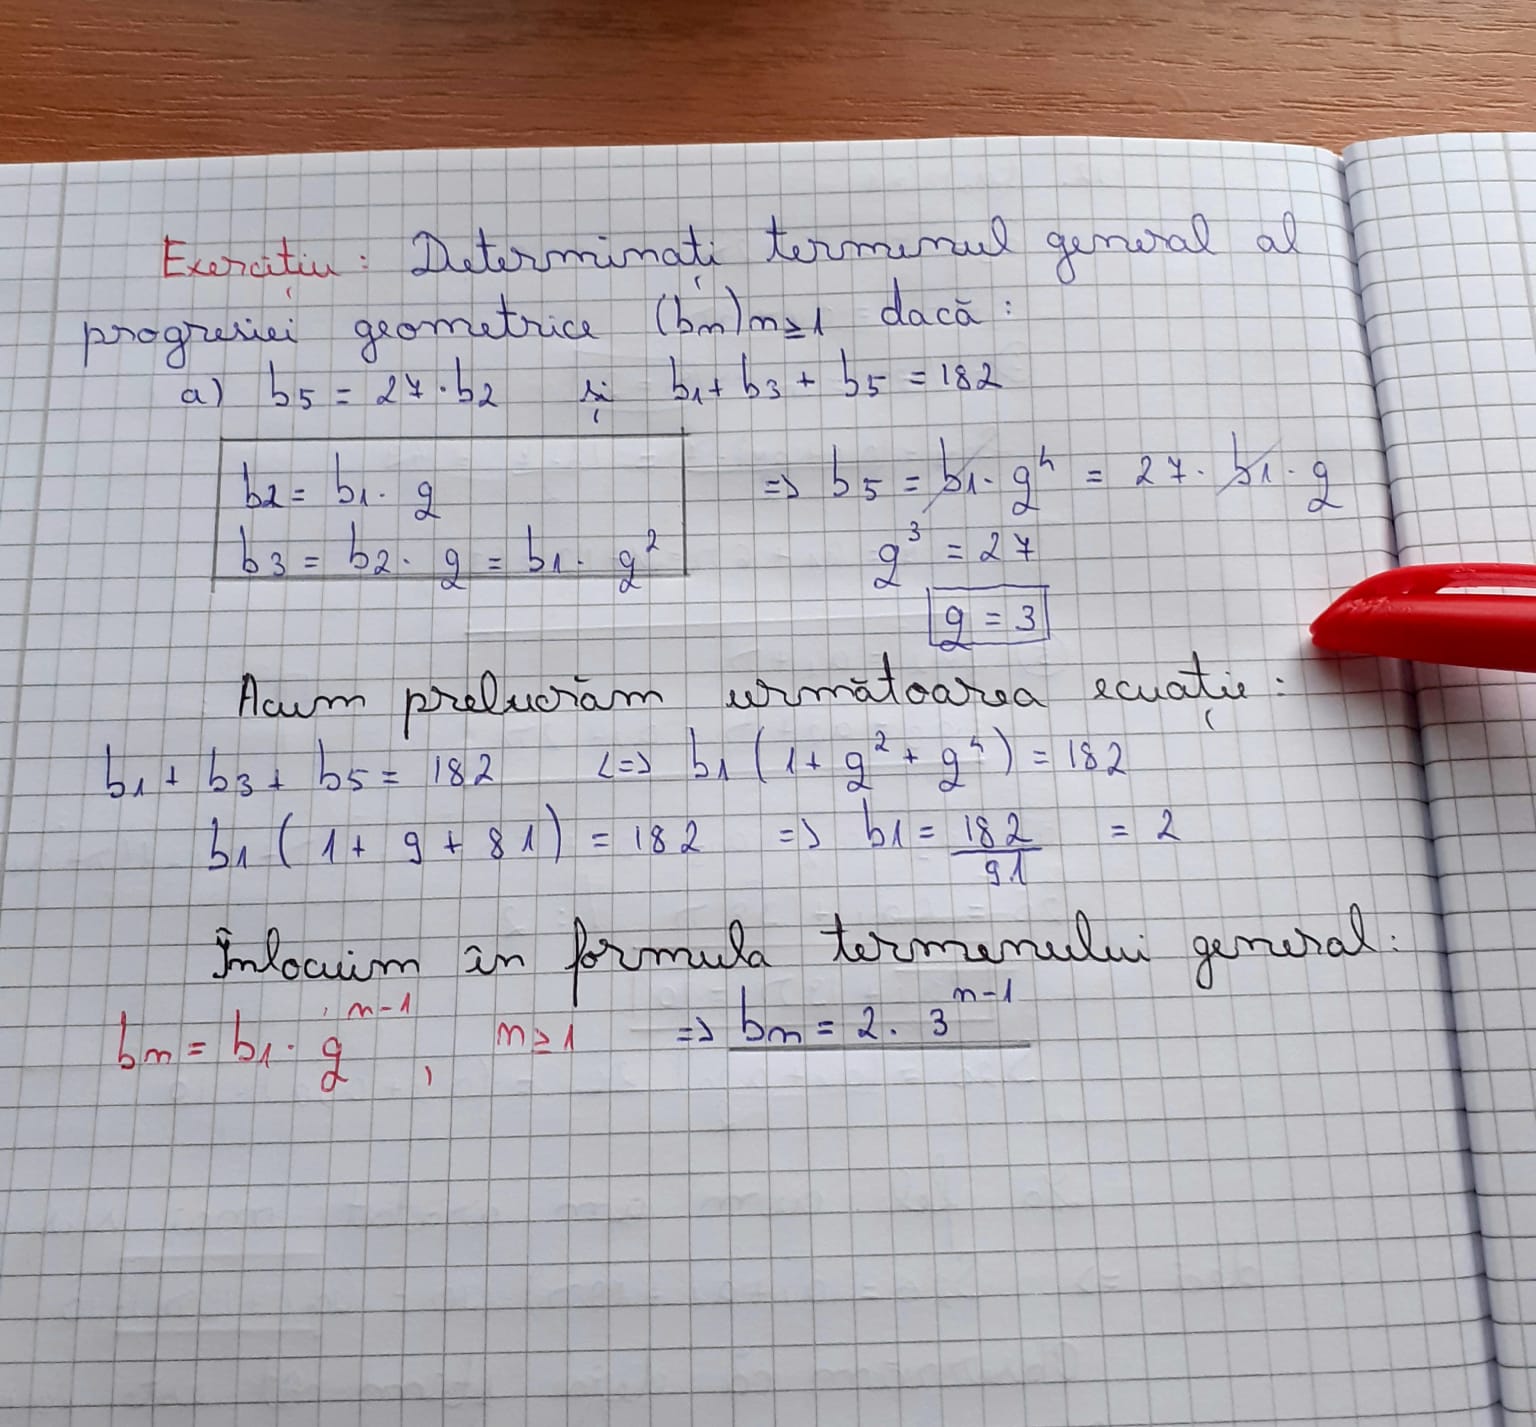 Exercițiu: Determinați termenul general al
progresiei geometrice (bn)n≥1 dacă:
a) b5 = 27·b2 și b1+ b3 + b5 = 182
b2 = b1· q
b3 = b2· q = b1· q²
=> b5 = b1· q⁴ = 27· b1· q
q³ = 27
q = 3
Acum prelucrăm următoarea ecuație:
b1 + b3 + b5 = 182 <=> b1 (1+ q² + q⁴) = 182
b1 ( 1+ 9 + 81) = 182 => b1 = 182/91 = 2
Înlocuim în formula termenului general:
bn = b1· q^n-1, n≥1 => bn = 2· 3^n-1